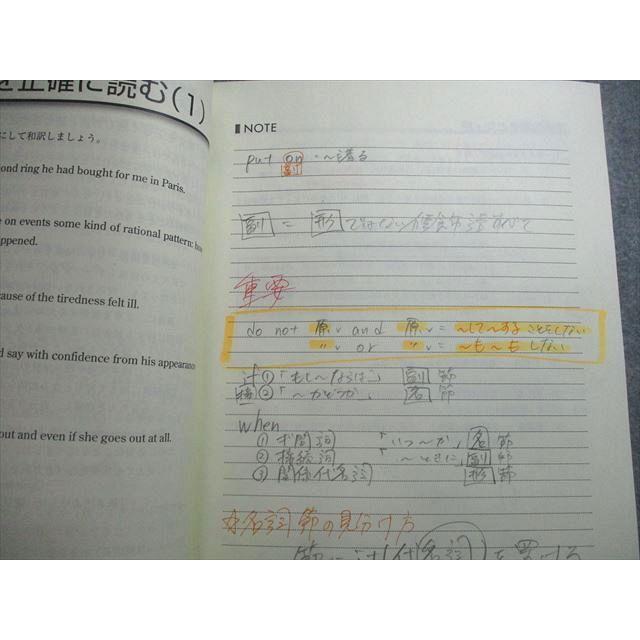 を正確に読む(1)
にして和訳しましょう。
ond ring he had bought for me in Paris.
e on events some kind of rational pattern:
appened.
ause of the tiredness felt ill.
d say with confidence from his appearance
out and even if she goes out at all.
NOTE
put on ・〜着る
副
副 = 形 でない修飾語すべて
重要
do not 原v and 原v = 〜して〜することをしない
〃v or 〃v = 〜も〜もしない
if ①「もし〜ならば」 副 節
接 ②「〜かどうか」 名 節
when
① 疑問詞 「いつ〜か」 名 節
② 接続詞 「〜ときに」 副 節
③ 関係代名詞 形 節
名詞節の見分け方
節 it (代名詞) を置ける